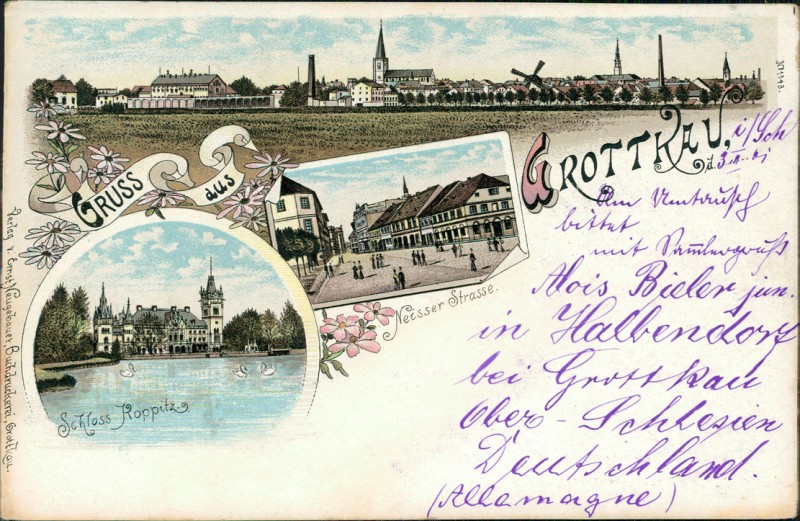 Gruss
aus
Grottkau,
i/Sch
d. 3.
Um Umtausch
bittet
mit Sammlergruß
Alois Bieler jun.
in Halbendorf
bei Grottkau
Ober-Schlesien
Deutschland.
(Allamagne)
Neisser Strasse.
Schloss Koppitz
Verlag v. Ernst Neugebauer, Buchdruckerei, Grottkau.